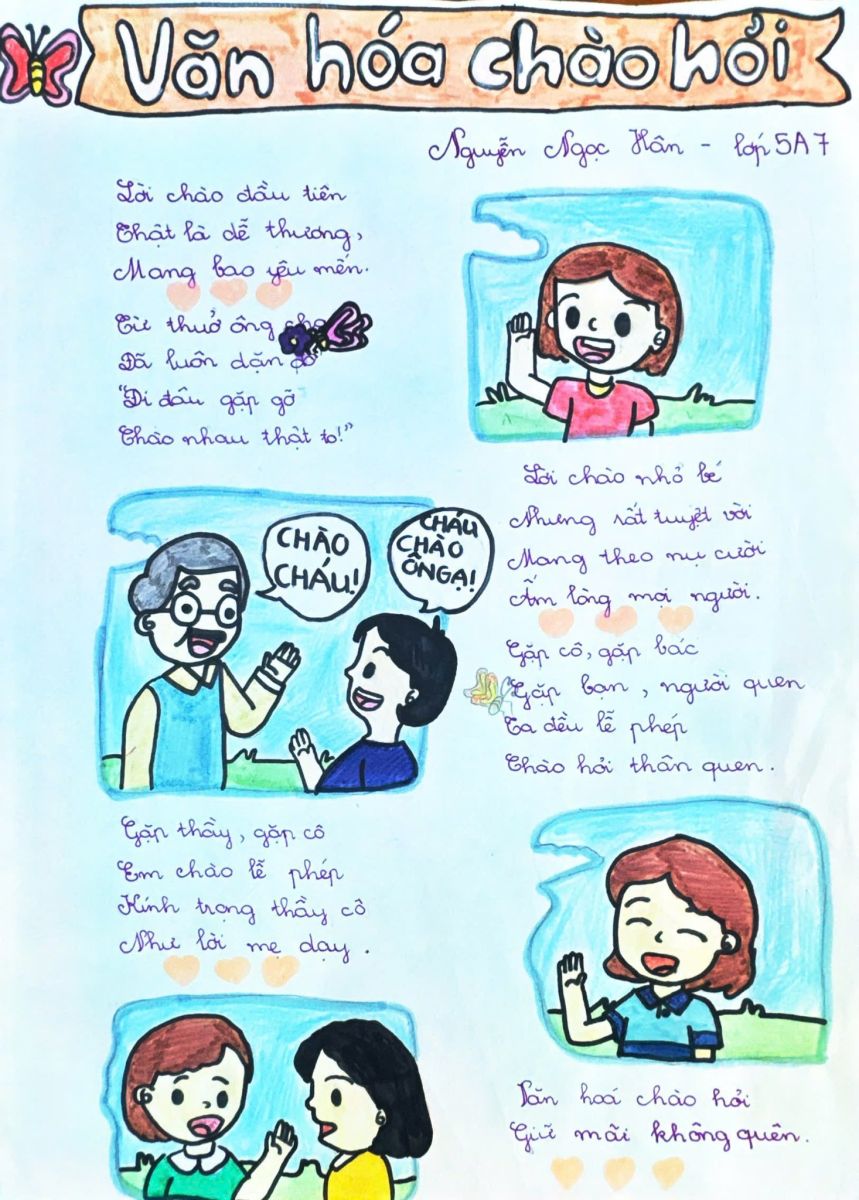 Văn hóa chào hỏi
Nguyễn Ngọc Hân - lớp 5A7
Lời chào đầu tiên
Thật là dễ thương,
Mang bao yêu mến.
Từ thuở ông cha
Đã luôn dặn dò
"Đi đâu gặp gỡ
Chào nhau thật to!"
Lời chào nhỏ bé
Nhưng rất tuyệt vời
Mang theo nụ cười
Ấm lòng mọi người.
Gặp cô, gặp bác
Gặp bạn, người quen
Ta đều lễ phép
Chào hỏi thân quen.
CHÀO
CHÁU!
CHÁU
CHÀO
ÔNG Ạ!
Gặp thầy, gặp cô
Em chào lễ phép
Kính trọng thầy cô
Như lời mẹ dạy.
Văn hoá chào hỏi
Giữ mãi không quên.